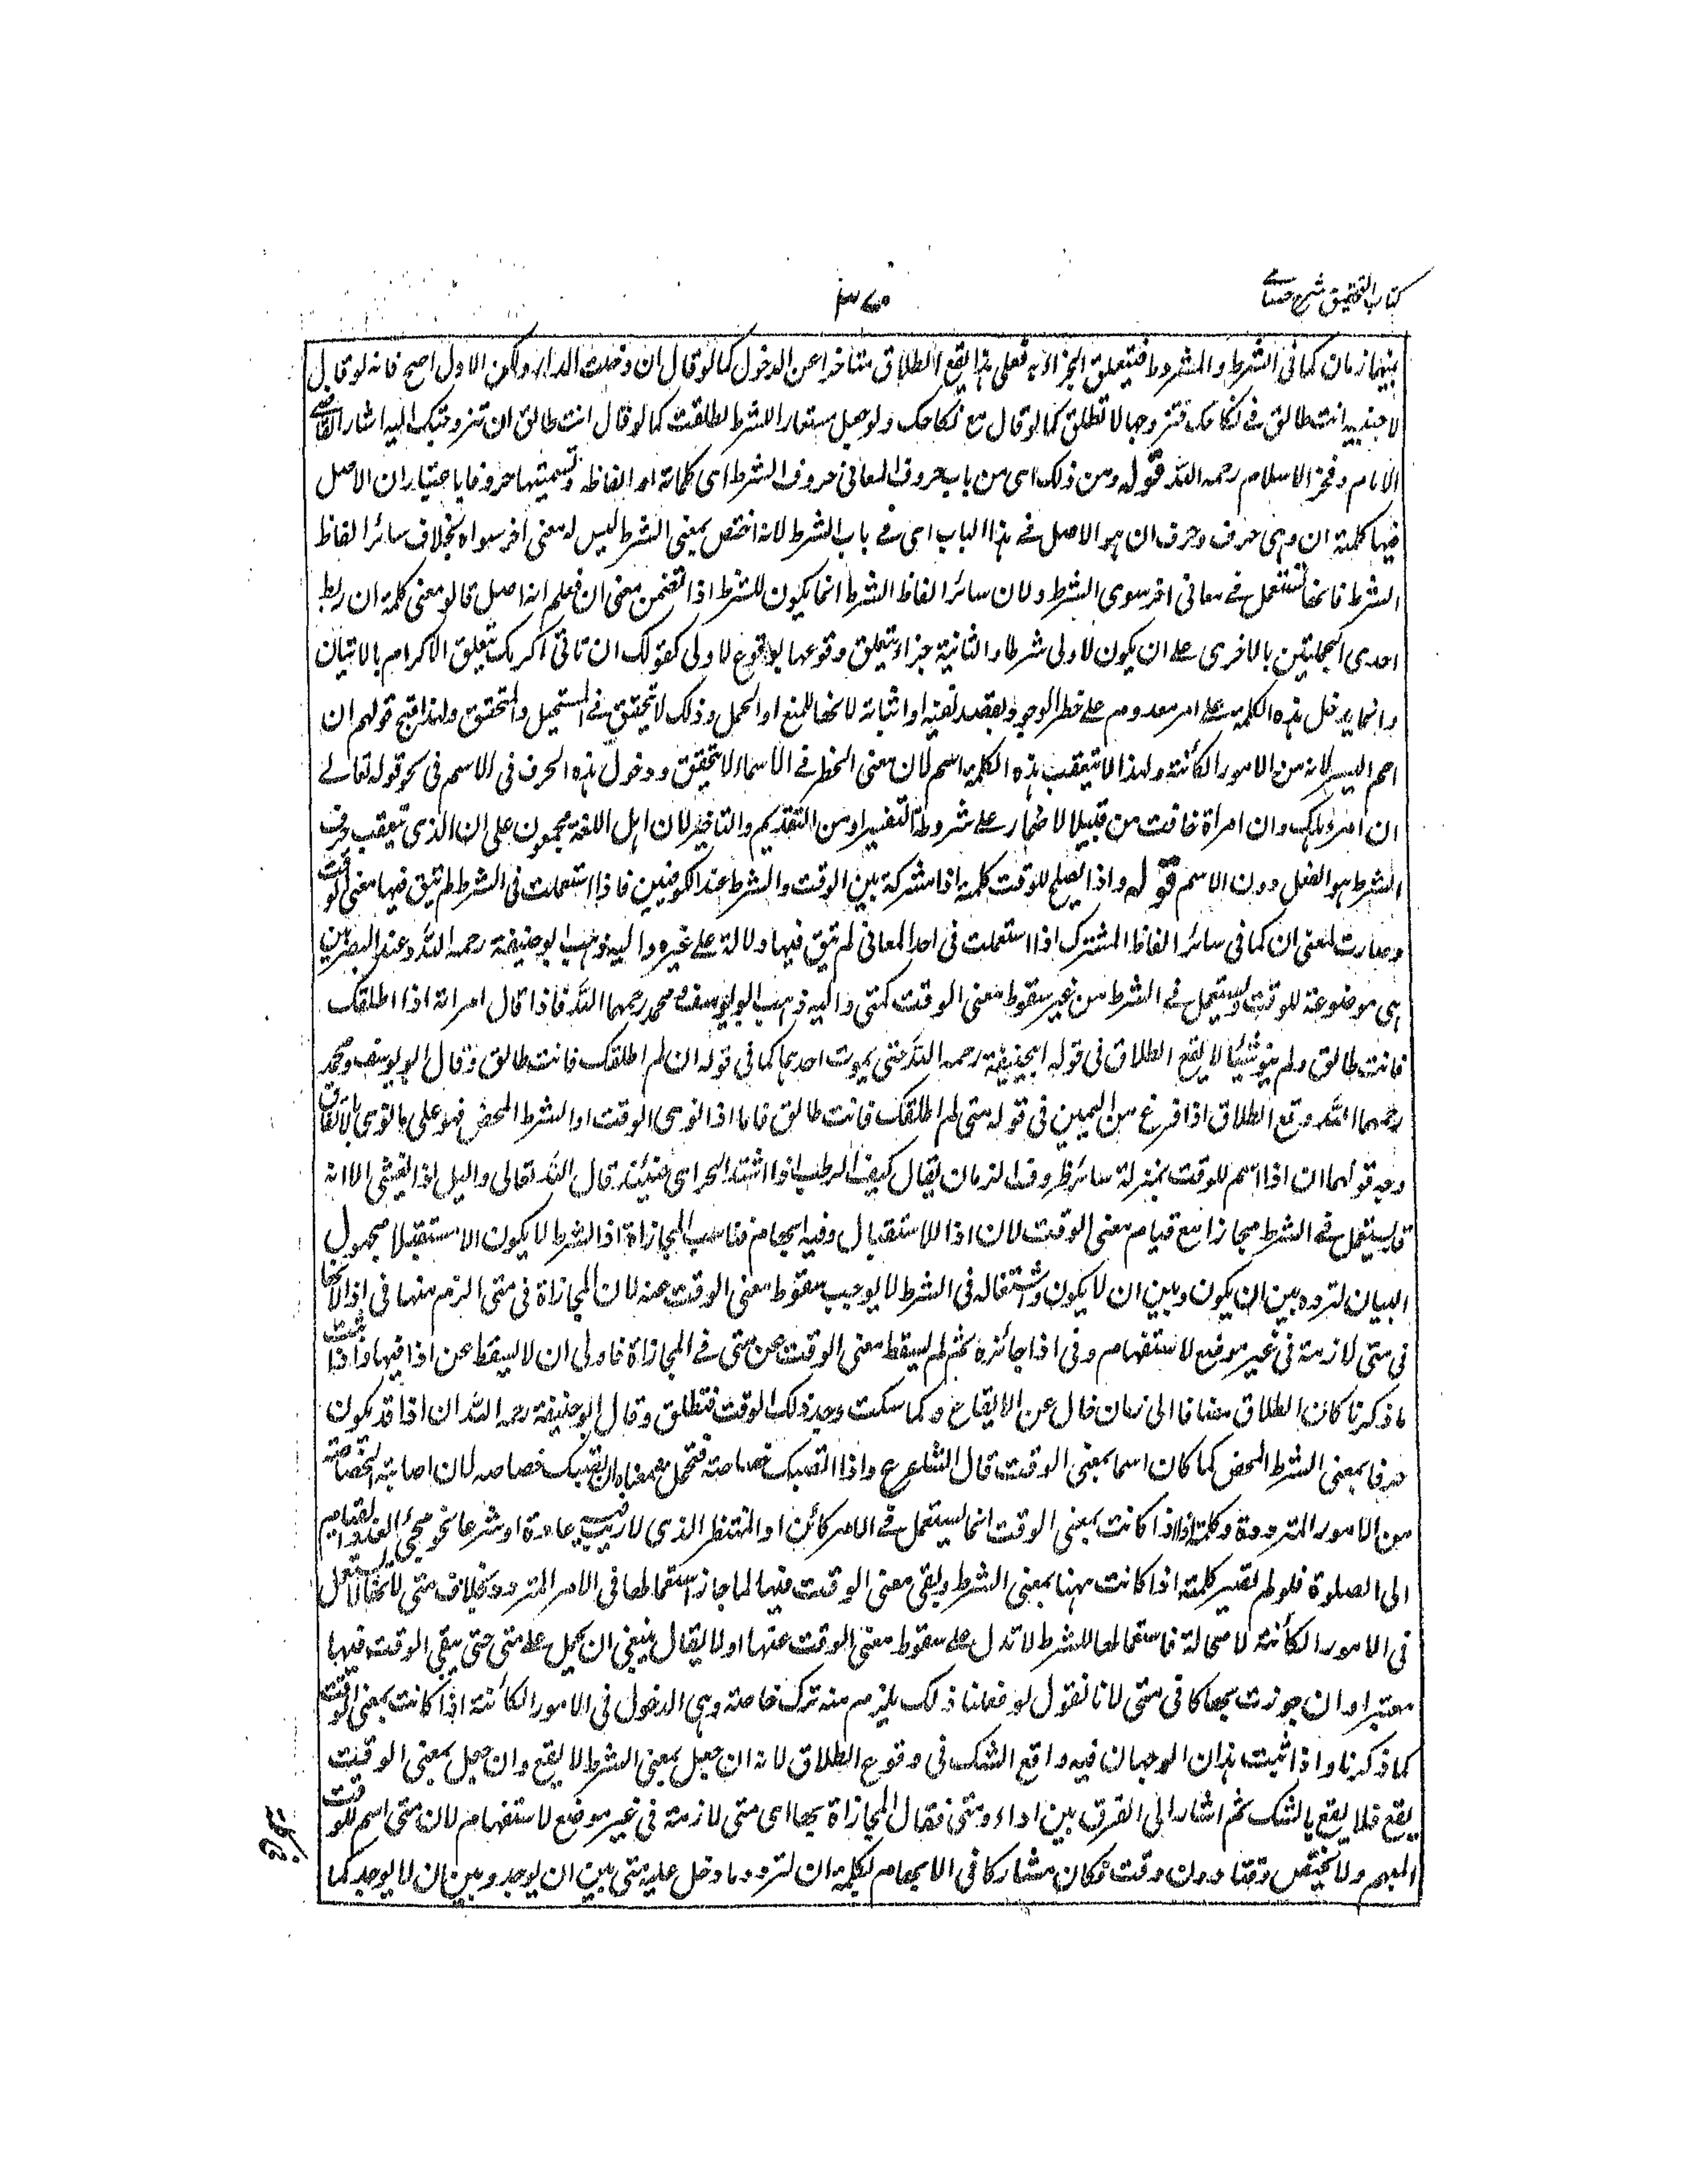 كتاب التحقيق شرح حسامے
بينهما زمان كما فى الشرط والمشروط فيتعلق الجزاء به فعلى هذا يقع الطلاق متاخرا عن الدخول كما لو قال ان دخلت الدار ولكن الاول اصح فانه لو قال
لاجنبية انت طالق فے نكاحك فتزوجها لا تطلق كما لو قال مع نكاحك ولو جعل مستعارا للشرط لطلقت كما لو قال انت طالق ان تزوجتك اليه اشار القاضے
الامام وفخر الاسلام رحمه الله قوله ومن ذلك اى من باب حروف المعانى حروف الشرط اى كلماته او الفاظه وتسميتها حروفا باعتبار ان الاصل
فيها كلمة ان وهى حرف وحرف ان هو الاصل فے هذا الباب اى فے باب الشرط لانه اختص بمعنى الشرط ليس له معنى اخر سواه بخلاف سائر الفاظ
الشرط فانها تستعمل فے معانى اخر سوى الشرط ولان سائر الفاظ الشرط انما يكون للشرط اذا تضمن معنى ان فعلم انه اصل قالوا معنى كلمة ان ربط
احدى الجملتين بالاخرى على ان يكون لاولى شرطا والثانية جزاء يتعلق وقوعها بوقوع لاولى كقولك ان تاتنى اكرمك يتعلق الاكرام بالاتيان
وانما يدخل هذه الكلمة على امر معدوم على خطر الوجود لقصد نفيه او اثباته لانها للمنع او الحمل وذلك لا يتحقق فے المستحيل والمتحقق ولهذا قبح قولهم ان
احمر البسر لانه من الامور الكائنة ولهذا لا يتعقب هذه الكلمة اسم لان معنى الخطر فے الاسماء لا يتحقق ودخول هذه الحرف فى الاسم فى نحو قوله تعالے
ان امرؤ هلك وان امراة خافت من قبيل الاضمار على شريطة التفسير او من التقديم والتاخير لان اهل اللغة مجمعون على ان الذى يتعقب حرف
الشرط هو الفعل دون الاسم قوله واذا يصلح للوقت كلمة اذا مشتركة بين الوقت والشرط عند الكوفيين فاذا استعملت فى الشرط لم تبق فيها معنى الوقت
وصارت لمعنى ان كما فى سائر الفاظ المشترك اذا استعملت فى احد المعانى لم تبق فيها دلالة على غيره واليه ذهب ابو حنيفة رحمه الله وعند البصريين
هى موضوعة للوقت وتستعمل فے الشرط من غير سقوط معنى الوقت كمتى واليه ذهب ابو يوسف ومحمد رحمهما الله فاذا قال امراته اذا اطلقك
فانت طالق ولم ينو شيئا لا يقع الطلاق فى قول ابى حنيفة رحمه الله حتى يموت احدهما كما فى قوله ان لم اطلقك فانت طالق وقال ابو يوسف ومحمد
رحمهما الله وقع الطلاق اذا فرغ من اليمين فى قوله متى لم اطلقك فانت طالق فاما اذا نوى الوقت او الشرط المحض فهو على ما نوى بالاتفاق
وجه قولهما ان اذا اسم للوقت بمنزلة سائر ظروف الزمان يقال كيف الرطب اذا اشتد الحر اى حينئذ قال الله تعالى واليل اذا يغشى الا انه
قد يستعمل فے الشرط مجازا مع قيام معنى الوقت لان اذا للاستقبال وفيه ابهام فناسب المجازاة اذ الشرط لا يكون الا مستقبلا مجهول
البيان لتردده بين ان يكون وبين ان لا يكون واستعماله فى الشرط لا يوجب سقوط معنى الوقت عنه لان المجازاة فى متى الزم منها فى اذا لانها
فى متى لازمة فى غير موضع لاستفهام وفى اذا جائزة ثم لم يسقط معنى الوقت عن متى فے المجازاة فاولى ان لا يسقط عن اذا فيها واذا ثبت
ما ذكرنا كان الطلاق مضافا الى زمان خال عن الايقاع وكما سكت وجد ذلك الوقت فتطلق وقال ابو حنيفة رحمه الله ان اذا قد يكون
حرفا بمعنى الشرط المحض كما كان اسما بمعنى الوقت قال الشاعر ع واذا تصبك خصاصة فتحمل معناه ان تصبك خصاصة لان اصابة الخصاصة
من الامور المترددة وكلمة اذا اذا كانت بمعنى الوقت انما يستعمل فے الامر كائن او المنتظر الذى لا ريب فيه عادة او شرعا نحو مجئ الغد والقيام
الى الصلوة فلو لم تصر كلمة اذا كانت ههنا بمعنى الشرط وبقى معنى الوقت فيها لما جاز استعمالها فى الامر المتردد بخلاف متى لانها تستعمل
فى الامور الكائنة لا محالة فاستعمالها للشرط لا تدل على سقوط معنى الوقت عنها او لا يقال ينبغى ان يحمل على متى حتى يبقى الوقت فيها
معتبرا وان جوزت بها كما فى متى لانا نقول لو فعلنا ذلك يلزم منه ترك خاصته وهى الدخول فى الامور الكائنة اذا كانت بمعنى الوقت
كما ذكرنا واذا ثبت هذان الوجهان فيه واقع الشك فى وقوع الطلاق لانه ان جعل بمعنى الشرط لا يقع وان جعل بمعنى الوقت
يقع فلا يقع بالشك ثم اشار الى الفرق بين اذا ومتى فقال المجازاة بها اى متى لازمة فى غير موضع لاستفهام لان متى اسم للوقت
المبهم ولا يختص وقتا دون وقت فكان مشاركا فى الابهام لكلمة ان لتردد ما دخل عليه متى بين ان يوجد وبين ان لا يوجد كما